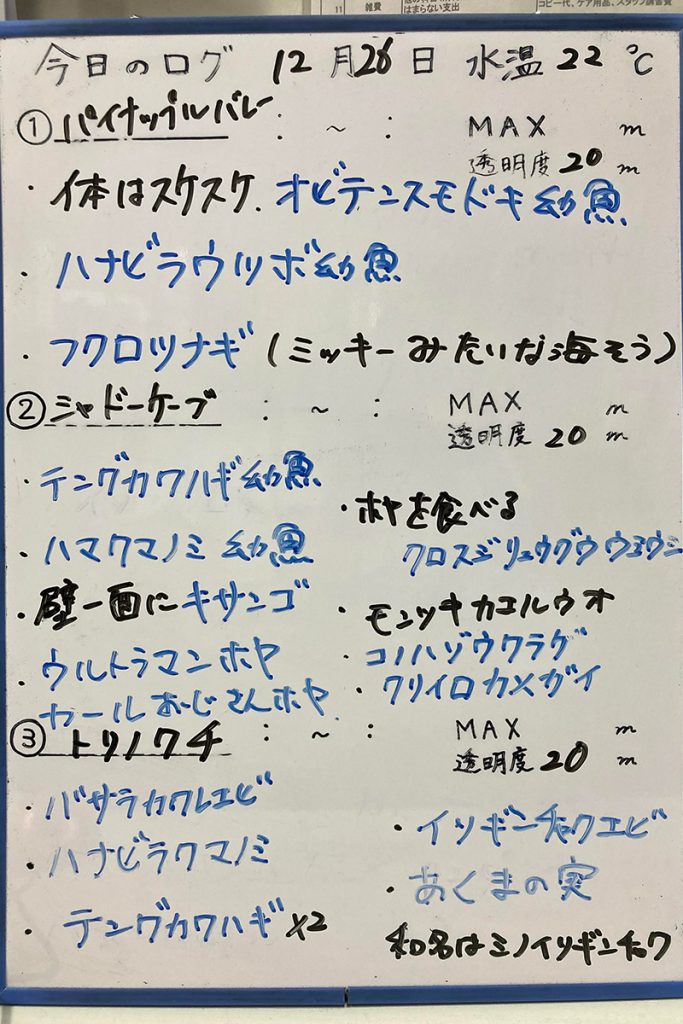 11
雑費
はまらない支出
コピー代、ケア用品、スタッフ講習費
今日のログ 12月26日 水温 22 ℃
① パイナップルバレー : ~ : MAX m
透明度 20 m
・体はスケスケ. オビテンスモドキ幼魚
・ハナビラウツボ幼魚
・フクロツナギ (ミッキーみたいな海そう)
② シャドーケーブ : ~ : MAX m
透明度 20 m
・テングカワハギ幼魚
・ハマクマノミ 幼魚
・壁一面にキサンゴ
・ウルトラマンホヤ
カールおじさんホヤ
・ホヤを食べる
クロスジリュウグウウミウシ
・モンツキカエルウオ
・コノハゾウクラゲ
・クリイロカメガイ
③ トリノクチ : ~ : MAX m
透明度 20 m
・バサラカクレエビ
・ハナビラクマノミ
・テングカワハギ x2
・イソギンチャクエビ
・あくまの実
和名はミノイソギンチャク